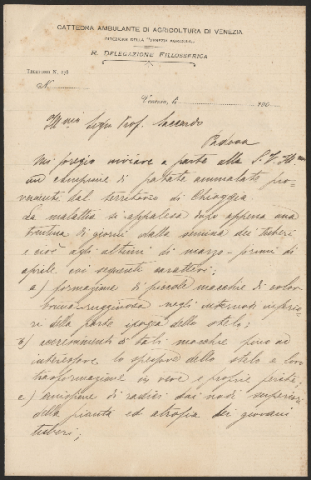 CATTEDRA AMBULANTE DI AGRICOLTURA DI VENEZIA
R. DELEGAZIONE FILLOSSERICA
TELEFONO N.
N.
Venezia, li 190
Ill.mo Sigr Prof. Saccardo
Padova
Mi pregio inviare a parte alla S. V. Ill.ma
un campione di patate ammalate pro-
venienti dal territorio di Chioggia.
La malattia si appalesa dopo appena una
trentina di giorni dalla semina dei tuberi
e cioè agli ultimi di marzo - primi di
aprile coi seguenti caratteri:
a) formazione di piccole macchie di color
bruno-rugginoso negli internodi inferio-
ri della parte ipogea dello stelo;
b) incremento di tali macchie fino ad
interessare lo spessore dello stelo e loro
trasformazione in vere e proprie piaghe;
c) emissione di radici dai nodi superiori
della pianta ed atrofia dei giovani
tuberi;